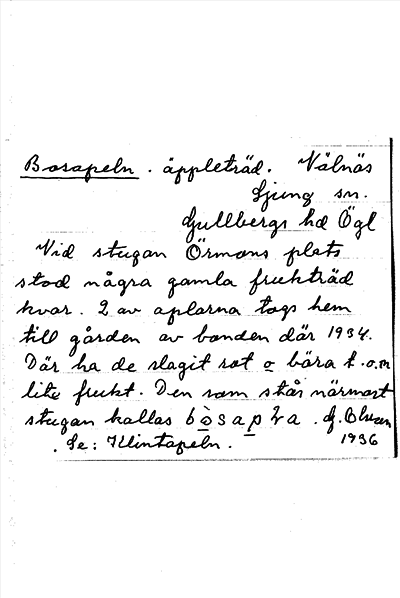 Bosapeln. äppleträd. Välnäs
Ljung sn.
Gullbergs hd Ögl
Vid stugan Örmons plats
stod några gamla fruktträd
kvar. 2 av aplarna togs hem
till gården av bonden där 1934.
Där ha de slagit rot o bära t.o.m
lite frukt. Den som står närmast
stugan kallas
. Se: Klintapeln. 1936